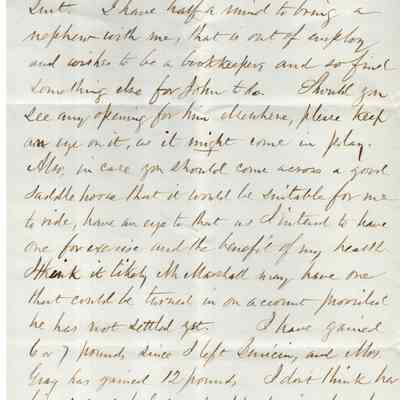 Sent I have half a mind to bring a
nephew with me, that is out of employ
and wishes to be a bookkeeper and so find
something else for John to do. Should you
see any opening for him elsewhere, please keep
an eye on it, as it might come in play.
Also, in case you should come across a good
saddle horse that it would be suitable for me
to ride, have an eye to that as I intend to have
one for exercise and the benefit of my health
I think it likely Mr Marshall may have one
that could be turned in on account provided
he has not settled yet. I have gained
6 or 7 pounds since I left and Mrs.
Gray has gained 12 pounds I dont think her